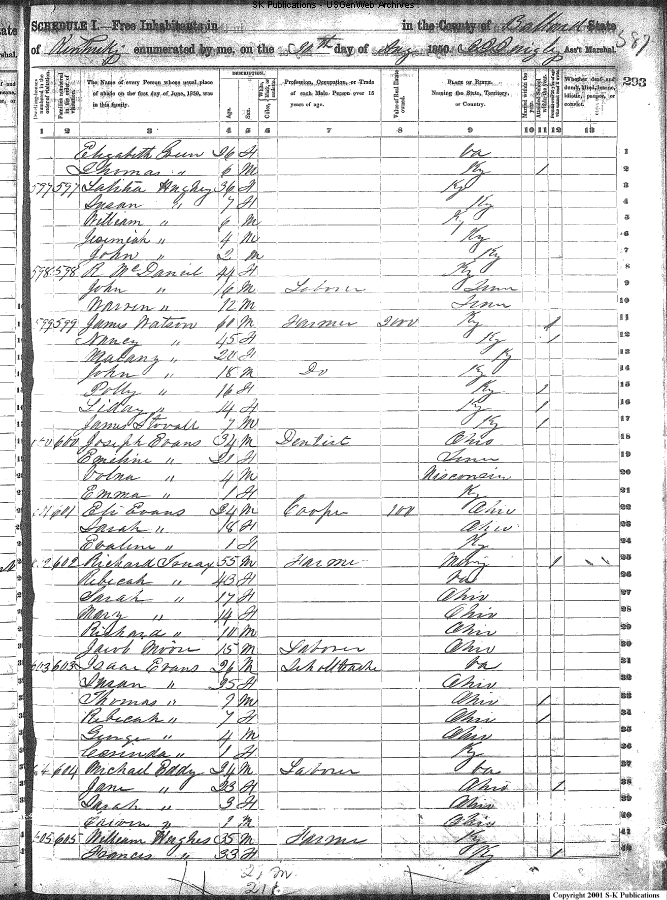 SK Publications - USGenWeb Archives
SCHEDULE I.—Free Inhabitants in in the County of Ballard State
of Kentucky enumerated by me, on the 20th day of Aug 1850. Ass't Marshal. 587
293
The Name of every Person whose usual place of abode on the first day of June, 1850, was in this family.
DESCRIPTION.
Age. Sex.
Profession, Occupation, or Trade of each Male Person over 15 years of age.
Value of Real Estate owned.
PLACE OF BIRTH. Naming the State, Territory, or Country.
Whether deaf and dumb, blind, insane, idiotic, pauper, or convict.
1 2 3 4 5 6 7 8 9 10 11 12 13
Elizabeth 26 F Va 1
Thomas " 6 M Ky 1 2
597 597 Hughey 36 F Ky 3
Susan " 7 F Ky 4
William " 6 M Ky 5
Jeremiah " 4 M Ky 6
John " 2 M Ky 7
598 598 R. McDaniel 44 F Ky 8
John " 16 M Laborer Tenn 9
Warren " 12 M Tenn 10
599 599 James Watson 60 M Farmer 2000 Ky 11
Nancy " 45 F Ky 1 12
" 20 F Ky 13
John " 18 M Do Ky 14
Polly " 16 F Ky 1 15
" 14 F Ky 1 16
James Stovall 7 M Ky 1 17
600 Joseph Evans 34 M Dentist Ohio 18
Emeline " 21 F Tenn 19
Volna " 4 M Wisconsin 20
Emma " 1 F Ky 21
601 Eli Evans 24 M Cooper 100 Ohio 22
Sarah " 18 F Ohio 23
Evaline " 1 F Ky 24
602 Richard 55 M Farmer 1 25
Rebecah " 43 F Va 26
Sarah " 17 F Ohio 27
Mary " 14 F Ohio 28
Richard " 10 M Ohio 29
Jacob Moore 15 M Laborer Ohio 30
603 603 Isaac Evans 26 M Va 31
Susan " 35 F Ohio 32
Thomas " 9 M Ohio 1 33
Rebecah " 7 F Ohio 1 34
George " 4 M Ohio 35
" 1 F Ky 36
604 Michael Eddy 24 M Laborer Va 37
Jane " 23 F Ohio 1 38
Sarah " 3 F Ohio 39
" M Ohio 40
605 605 William Hughes 35 M Farmer Ky 41
Frances " 33 F Ky 1 42
21 M
21 F
Copyright 2001 S-K Publications